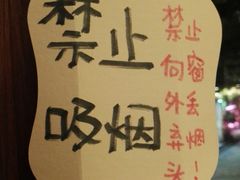 禁止
吸烟
禁止
向窗
外丢
弃烟
头！